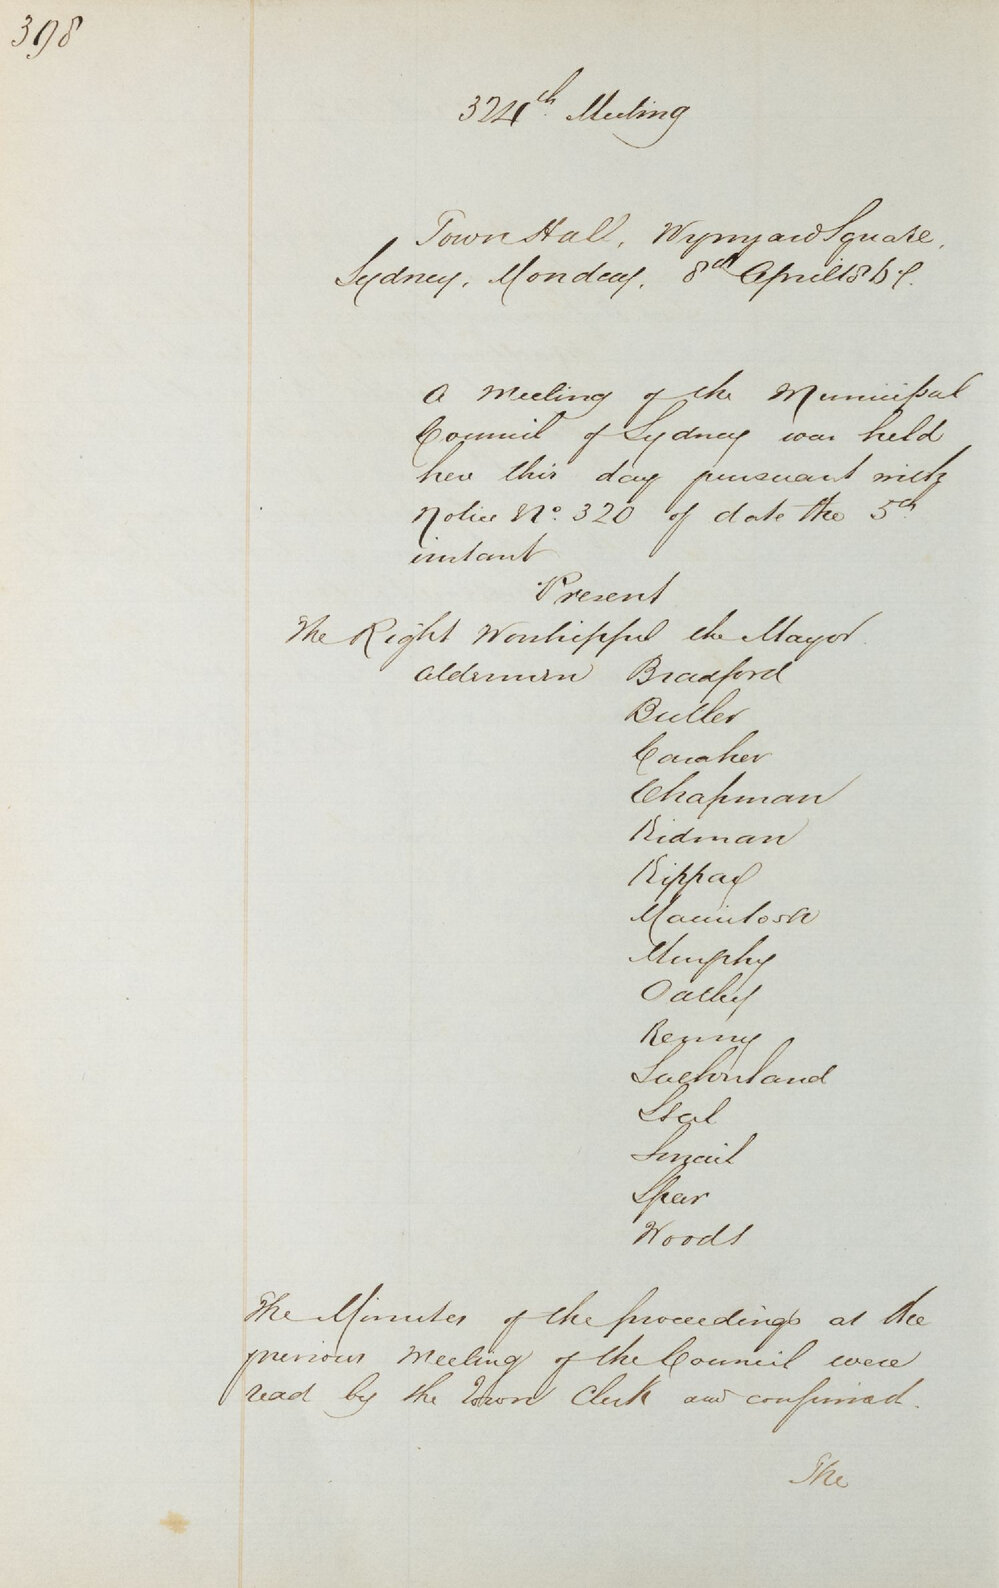 398
324th Meeting
Town Hall, Wynyard Square,
Sydney, Monday, 8th April
A Meeting of the Municipal
Council of Sydney was held
here this day pursuant with
Notice No. 320 of date the 5th
instant
Present
The Right Worshipful the Mayor.
Aldermen Bradford
Butler
Caraher
Chapman
Kidman
Kippax
Macintosh
Murphy
Oatley
Renny
Sutherland
Steel
Smail
Spear
Woods
The Minutes of the proceedings at the
previous Meeting of the Council were
read by the Town Clerk and confirmed.
The